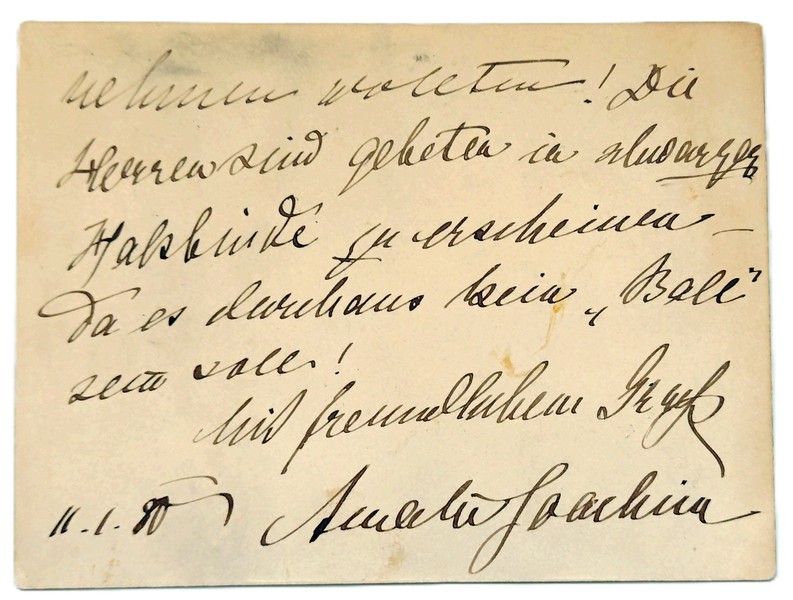 nehmen wollten! Die
Herren sind gebeten in schwarzer
Halsbinde zu erscheinen –
da es durchaus kein „Ball"
sein soll!
Mit freundlichem Gruß
11.1.80 Amalie Joachim